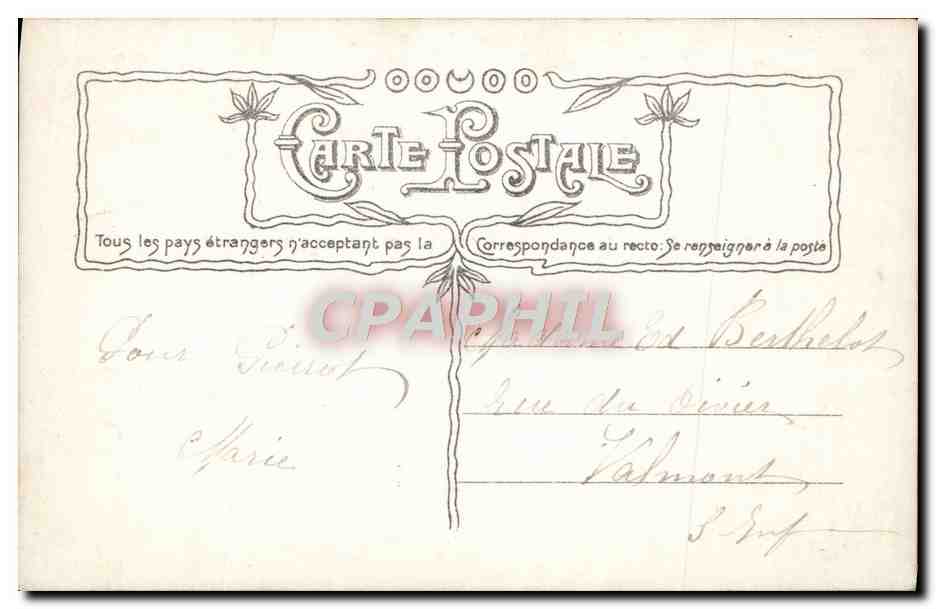 CARTE POSTALE
Tous les pays étrangers n'acceptant pas la Correspondance au recto: Se renseigner à la poste
CPAPHIL
Pour Pierrot
Marie
Madame Ed Berthelot
Rue du Vivier
Valmont
S. Inf